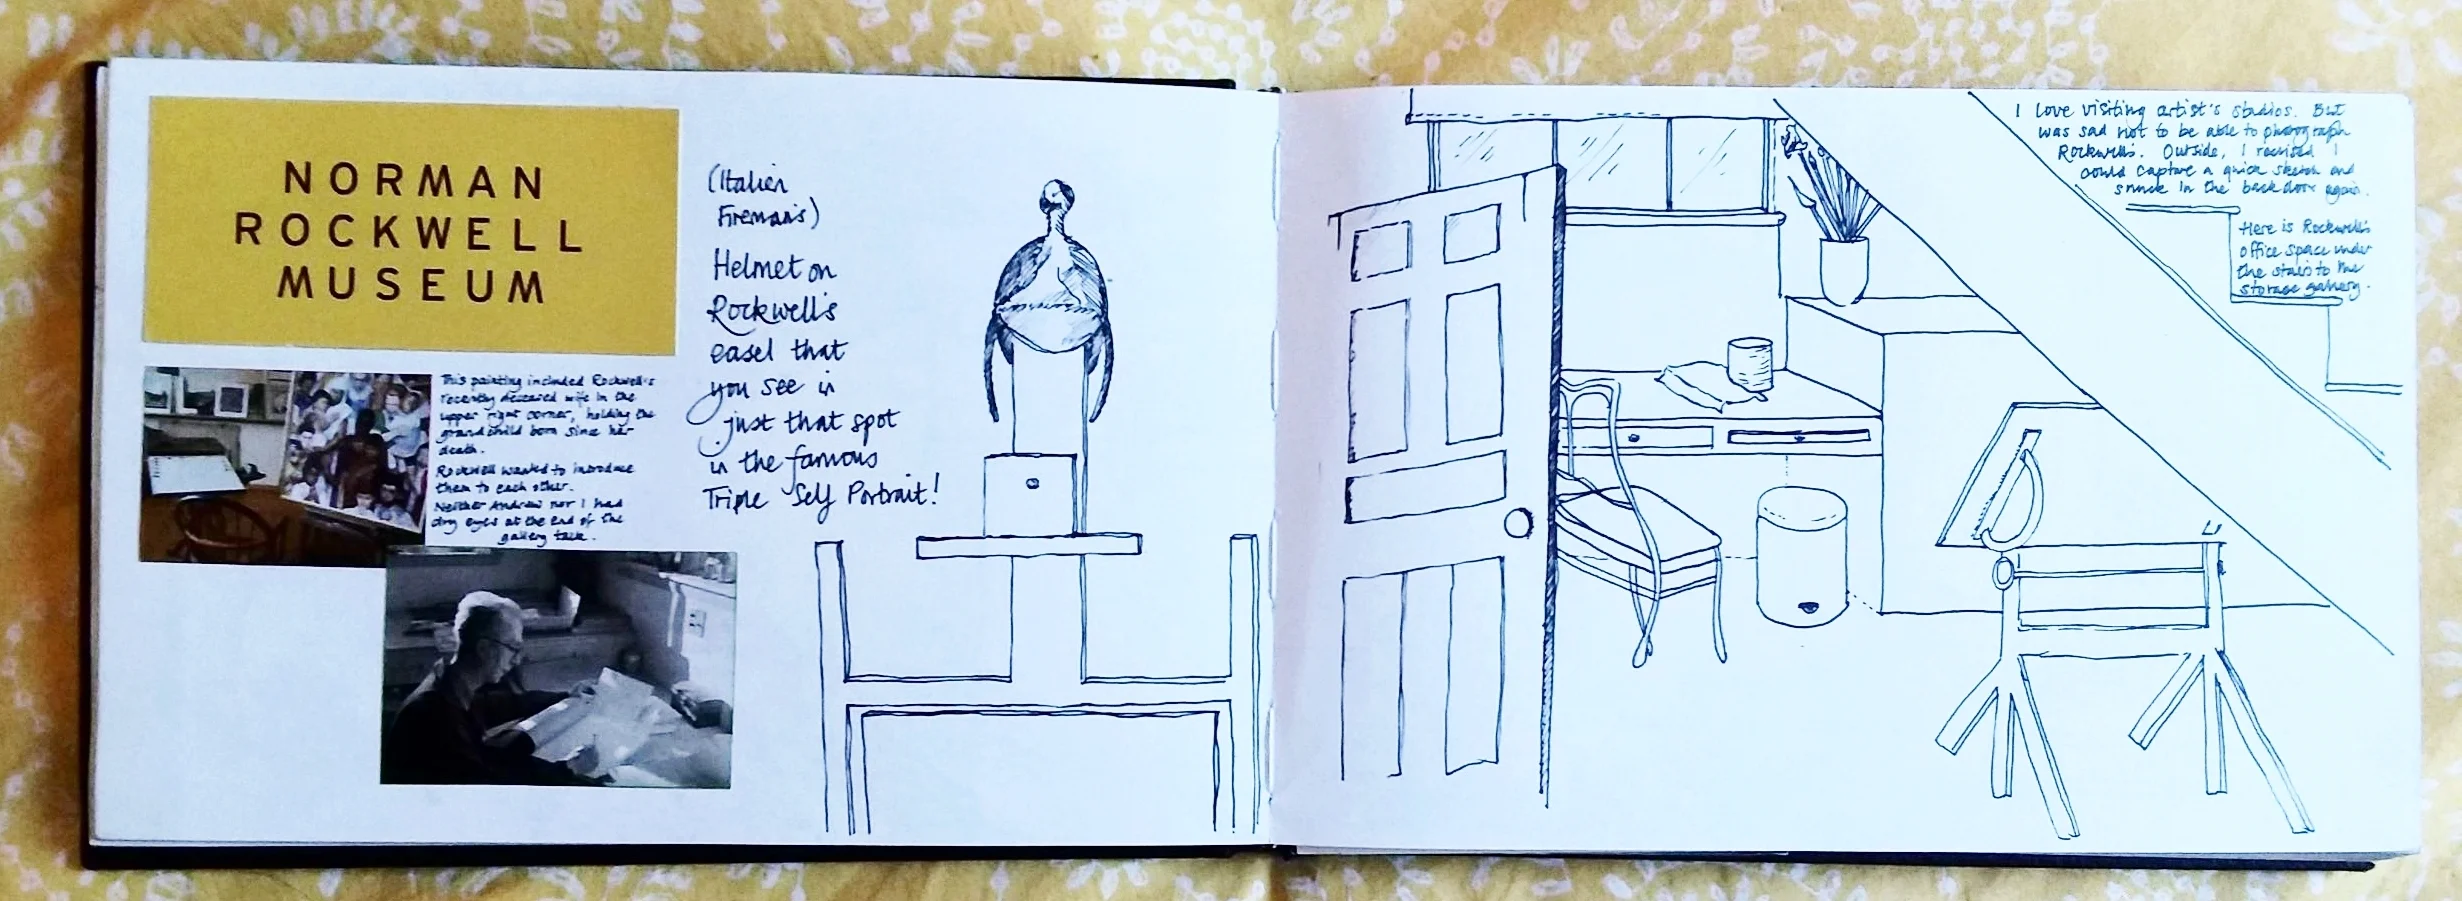 NORMAN
ROCKWELL
MUSEUM
This painting included Rockwell's
recently deceased wife in the
upper right corner, holding the
grandchild born since her
death.
Rockwell wanted to introduce
them to each other.
Neither Andrew nor I had
dry eyes at the end of the
gallery talk.
(Italian
Fireman's)
Helmet on
Rockwell's
easel that
you see in
just that spot
in the famous
Triple Self Portrait!
I love visiting artist's studios. But
was sad not to be able to photograph
Rockwell's. Outside, I realised I
could capture a quick sketch and
snuck in the back door again.
Here is Rockwell's
office space under
the stairs to the
storage gallery.